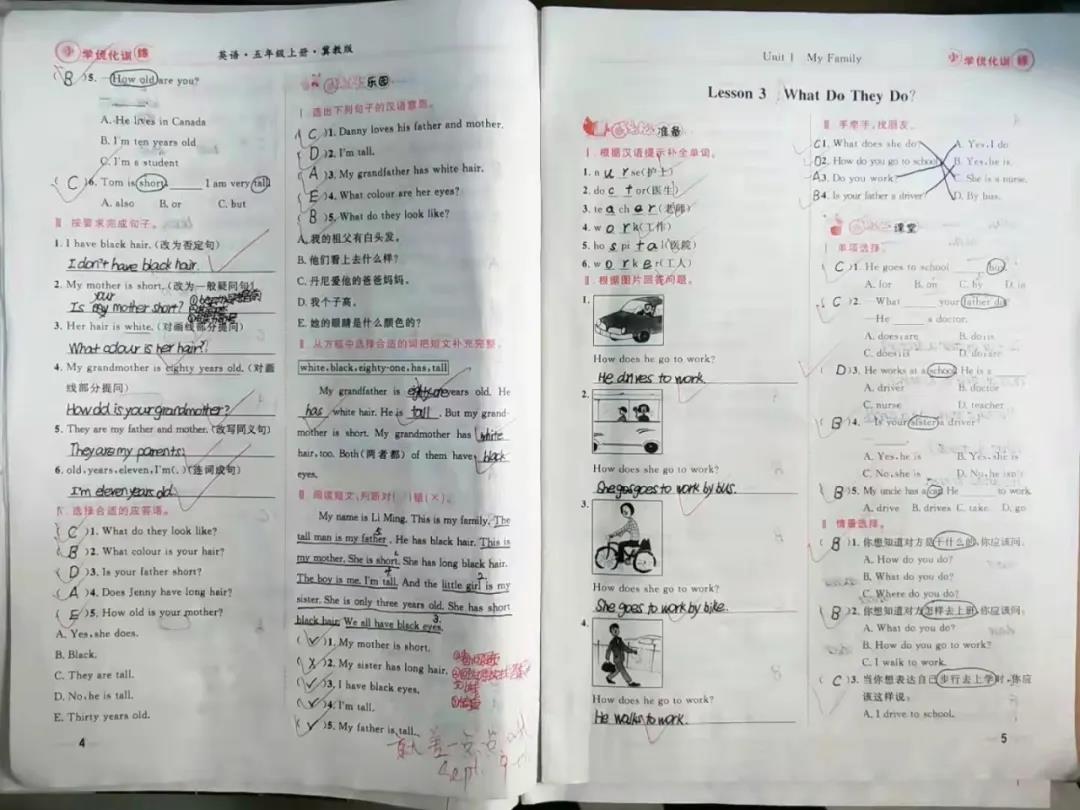 小学优化训练 英语·五年级上册·冀教版
( B )5. —How old are you?
—______
A. He lives in Canada
B. I'm ten years old
C. I'm a student
( C )6. Tom is short, ______ I am very tall.
A. also B. or C. but
Ⅲ 按要求完成句子。
1. I have black hair. (改为否定句)
I don't have black hair.
2. My mother is short. (改为一般疑问句)
Is your mother short?
3. Her hair is white. (对画线部分提问)
What colour is her hair?
4. My grandmother is eighty years old. (对画
线部分提问)
How old is your grandmother?
5. They are my father and mother. (改写同义句)
They are my parents.
6. old, years, eleven, I'm(.)(连词成句)
I'm eleven years old.
Ⅳ 选择合适的应答语。
( C )1. What do they look like?
( B )2. What colour is your hair?
( D )3. Is your father short?
( A )4. Does Jenny have long hair?
( E )5. How old is your mother?
A. Yes, she does.
B. Black.
C. They are tall.
D. No, he is tall.
E. Thirty years old.
4
乐园
Ⅰ 选出下列句子的汉语意思。
( C )1. Danny loves his father and mother.
( D )2. I'm tall.
( A )3. My grandfather has white hair.
( E )4. What colour are her eyes?
( B )5. What do they look like?
A. 我的祖父有白头发。
B. 他们看上去什么样?
C. 丹尼爱他的爸爸妈妈。
D. 我个子高。
E. 她的眼睛是什么颜色的?
Ⅱ 从方框中选择合适的词把短文补充完整。
white, black, eighty-one, has, tall
My grandfather is years old. He
has white hair. He is tall. But my grand-
mother is short. My grandmother has white
hair, too. Both(两者都) of them have black
eyes.
Ⅲ 阅读短文,判断对(√)错(×)。
My name is Li Ming. This is my family. The
tall man is my father. He has black hair. This is
my mother. She is short. She has long black hair.
The boy is me. I'm tall. And the little girl is my
sister. She is only three years old. She has short
black hair. We all have black eyes.
( √ )1. My mother is short.
( × )2. My sister has long hair.
( √ )3. I have black eyes.
( √ )4. I'm tall.
( √ )5. My father is tall.
差一点点
Sept. 9th
Unit 1 My Family 小学优化训练
Lesson 3 What Do They Do?
准备
Ⅰ 根据汉语提示补全单词。
1. n u rse(护士)
2. do c t or(医生)
3. te a ch er(老师)
4. w o r k(工作)
5. ho s pi t a l(医院)
6. w o r k e r(工人)
Ⅱ 根据图片回答问题。
1.
How does he go to work?
He drives to work.
2.
How does she go to work?
She goes to work by bus.
3.
How does she go to work?
She goes to work by bike.
4.
How does he go to work?
He walks to work.
Ⅲ 手牵手,找朋友。
C 1. What does she do? A. Yes, I do
D 2. How do you go to school? B. Yes, he is.
A 3. Do you work? C. She is a nurse.
B 4. Is your father a driver? D. By bus.
课堂
Ⅰ 单项选择。
( C )1. He goes to school ______ bus.
A. for B. on C. by D. in
( C )2. —What ______ your father do?
—He ______ a doctor.
A. does; are B. do; is
C. does; is D. do; are
( D )3. He works at a school. He is a ______
A. driver B. doctor
C. nurse D. teacher
( B )4. —Is your sister a driver?
—______
A. Yes, he is B. Yes, she is
C. No, she is D. No, he isn't
( B )5. My uncle has a car. He ______ to work.
A. drive B. drives C. take D. go
Ⅱ 情景选择。
( B )1. 你想知道对方是干什么的,你应该问:
A. How do you do?
B. What do you do?
C. Where do you do?
( B )2. 你想知道对方怎样去上班,你应该问:
A. What do you do?
B. How do you go to work?
C. I walk to work.
( C )3. 当你想表达自己步行去上学时,你应
该这样说:
A. I drive to school.
5